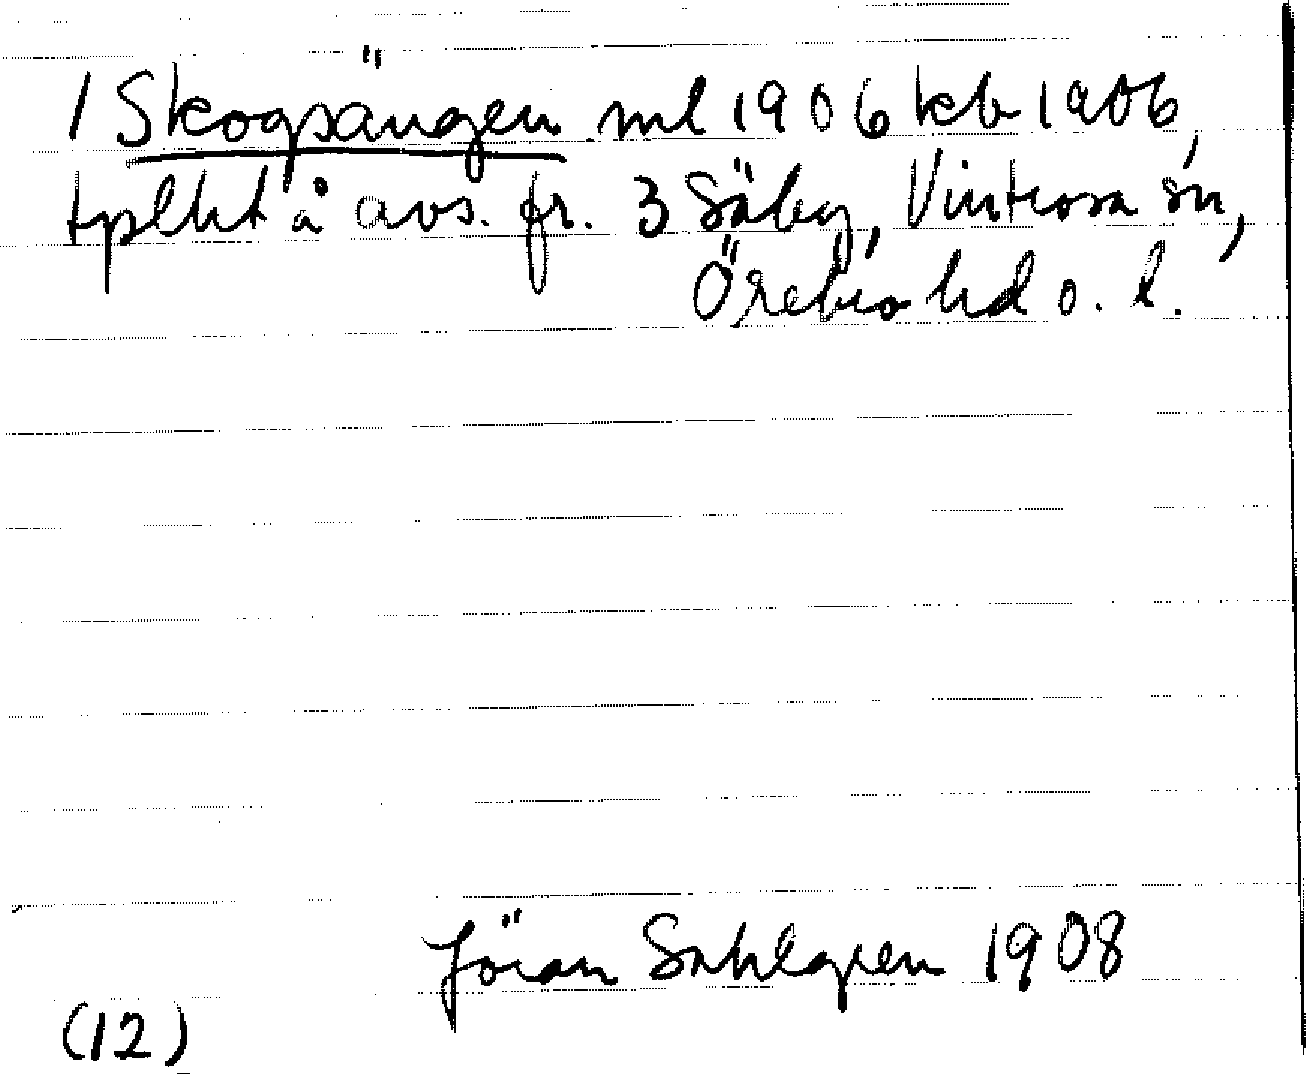 1 Skogsängen ml 1906 kb 1906,
tplht å avs. fr. 3 Säby, Vintrosa sn,
Örebro hd o. l.
Jöran Sahlgren 1908
(12)